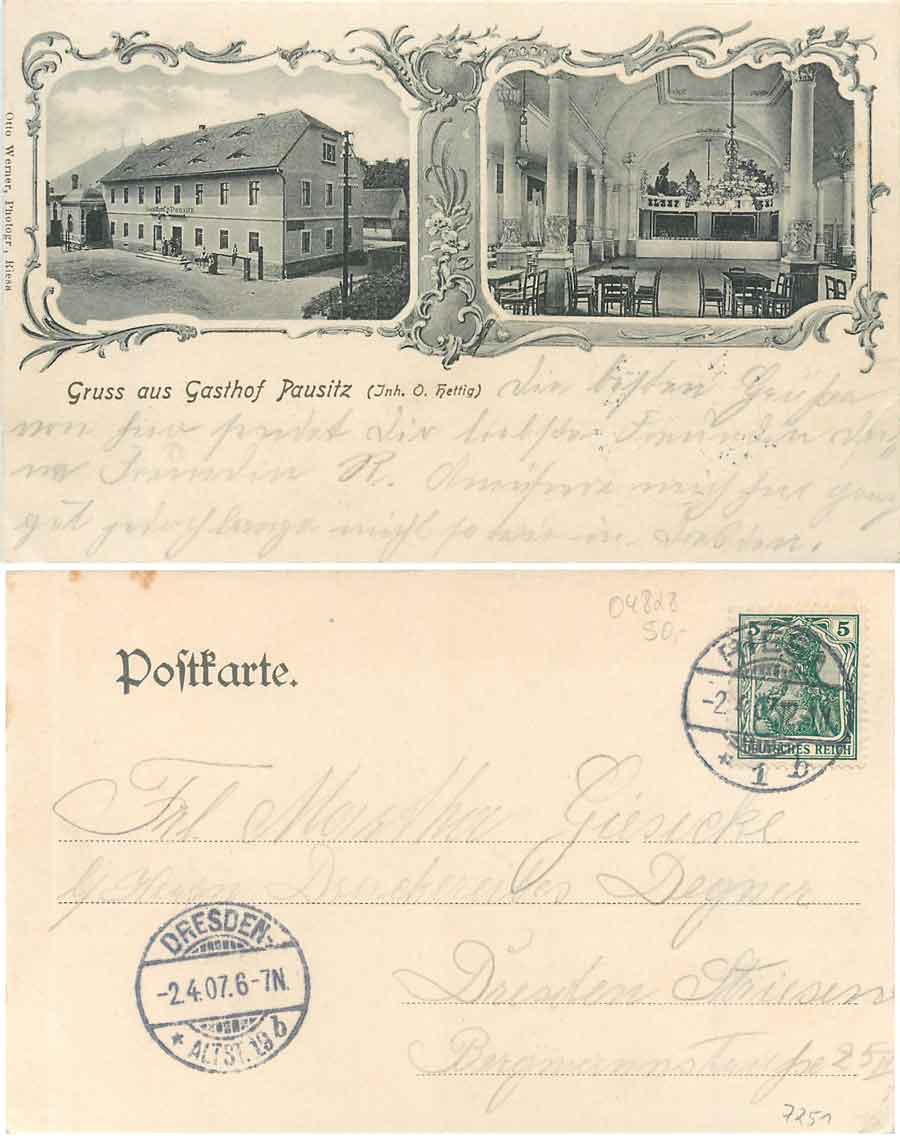 Otto Werner, Photogr., Riesa
Gasthof Pausitz
Gruss aus Gasthof Pausitz (Inh. O. Hettig) Die besten Grüße
von hier sendet Dir liebste Freundin
Freundin R. Amüsiere mich hier ganz
gut jedoch lange nicht so wie in Dresden.
04828
50,-
Postkarte.
5 5
DEUTSCHES REICH
RIESA
-2.4.07
* 1 b
Frl Martha Giesicke
Herrn Degner
DRESDEN-
-2.4.07.6-7N.
* ALTST. 19 b
Dresden Striesen
Bergmannstraße 25
7251